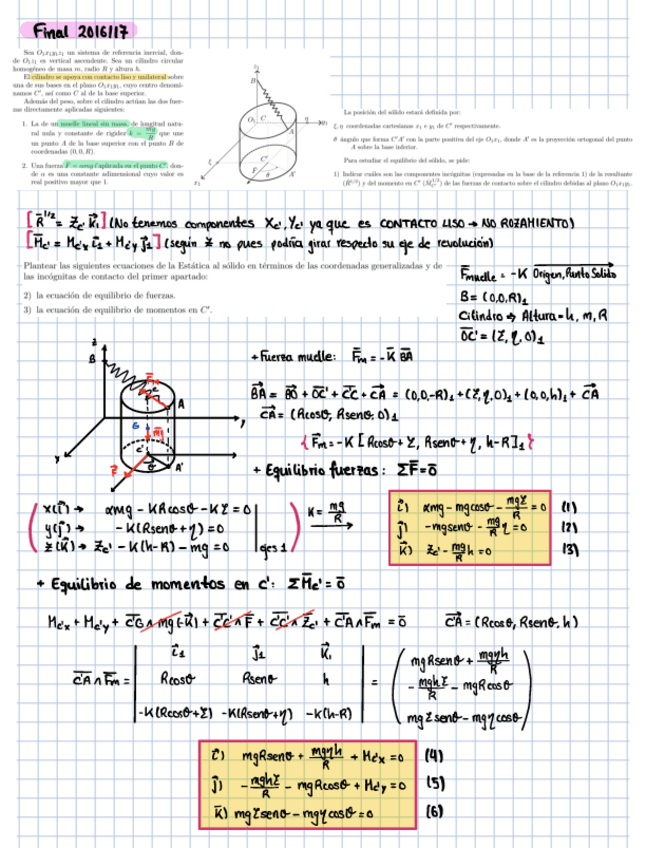 Final 2016/17
Sea O₁x₁y₁z₁ un sistema de referencia inercial, don-
de O₁z₁ es vertical ascendente. Sea un cilindro circular
homogéneo de masa m, radio R y altura h.
El cilindro se apoya con contacto liso y unilateral sobre
una de sus bases en el plano O₁x₁y₁, cuyo centro denomi-
namos C', así como C al de la base superior.
Además del peso, sobre el cilindro actúan las dos fuer-
zas directamente aplicadas siguientes:
1. La de un muelle lineal sin masa, de longitud natu-
ral nula y constante de rigidez k = mg/R que une
un punto A de la base superior con el punto B de
coordenadas (0, 0, R).
2. Una fuerza F = αmg i aplicada en el punto C', don-
de α es una constante adimensional cuyo valor es
real positivo mayor que 1.
z₁
B
O₁
C
A
η
y₁
ξ
C'
F
θ
A'
x₁
La posición del sólido estará definida por:
ξ, η coordenadas cartesianas x₁ e y₁ de C' respectivamente.
θ ángulo que forma C'A' con la parte positiva del eje O₁x₁, donde A' es la proyección ortogonal del punto
A sobre la base inferior.
Para estudiar el equilibrio del sólido, se pide:
1) Indicar cuáles son las componentes incógnitas (expresadas en la base de la referencia 1) de la resultante
y del momento en C' de las fuerzas de contacto sobre el cilindro debidas al plano O₁x₁y₁.
[R̄^1/2 = Z_C' k̄₁] (No tenemos componentes X_C', Y_C' ya que es CONTACTO LISO → NO ROZAMIENTO)
[M̄_C' = M_C'x ī₁ + M_C'y j̄₁] (según z no pues podría girar respecto su eje de revolución)
Plantear las siguientes ecuaciones de la Estática al sólido en términos de las coordenadas generalizadas y de
las incógnitas de contacto del primer apartado:
2) la ecuación de equilibrio de fuerzas.
3) la ecuación de equilibrio de momentos en C'.
F̄muelle = -K Origen, Punto Solido
B = (0,0,R)₁
Cilindro ⇒ Altura = h, m, R
OC' = (ξ, η, 0)₁
z
B
F̄m
c
A
G
mg
y
x
c'
θ
A'
F̄
+ Fuerza muelle: F̄m = -K BA
BA = BO + OC' + C'C + CA = (0,0,-R)₁ + (ξ,η,0)₁ + (0,0,h)₁ + CA
CA = (Rcosθ, Rsenθ, 0)₁
{ F̄m = -K [Rcosθ + ξ, Rsenθ + η, h-R]₁ }
+ Equilibrio fuerzas: ΣF̄ = 0̄
x(ī) → αmg - KRcosθ - Kξ = 0
y(j̄) → -K(Rsenθ + η) = 0
z(k̄) → Z_C' - K(h-R) - mg = 0
ejes 1
K = mg/R
ī) αmg - mgcosθ - mgξ/R = 0 (1)
j̄) -mgsenθ - mg/R η = 0 (2)
k̄) Z_C' - mg/R h = 0 (3)
+ Equilibrio de momentos en c': ΣM̄_C' = 0̄
M_C'x + M_C'y + C'G ∧ mg(-k̄) + C'C' ∧ F̄ + C'C' ∧ Z̄_C' + C'A ∧ F̄m = 0̄ C'A = (Rcosθ, Rsenθ, h)
C'A ∧ F̄m = | ī₁ j̄₁ k̄₁
Rcosθ Rsenθ h
-K(Rcosθ+ξ) -K(Rsenθ+η) -K(h-R) | =
mgRsenθ + mgηh/R
-mghξ/R - mgRcosθ
mgξsenθ - mgηcosθ
ī) mgRsenθ + mgηh/R + M_C'x = 0 (4)
j̄) -mghξ/R - mgRcosθ + M_C'y = 0 (5)
k̄) mgξsenθ - mgηcosθ = 0 (6)